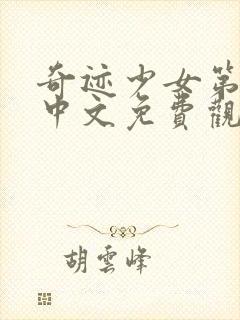 奇迹少女第
中文免費觀
胡雲峰